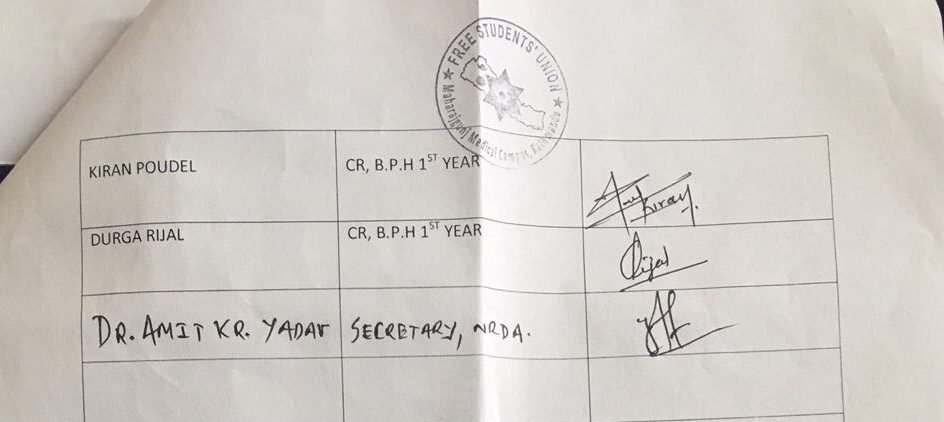 ★ FREE STUDENTS' UNION ★
Maharajgunj Medical Campus, Kathmandu
KIRAN POUDEL CR, B.P.H 1ST YEAR Kiran.
DURGA RIJAL CR, B.P.H 1ST YEAR Rijal
DR. AMIT KR. YADAV SECRETARY, NRDA.